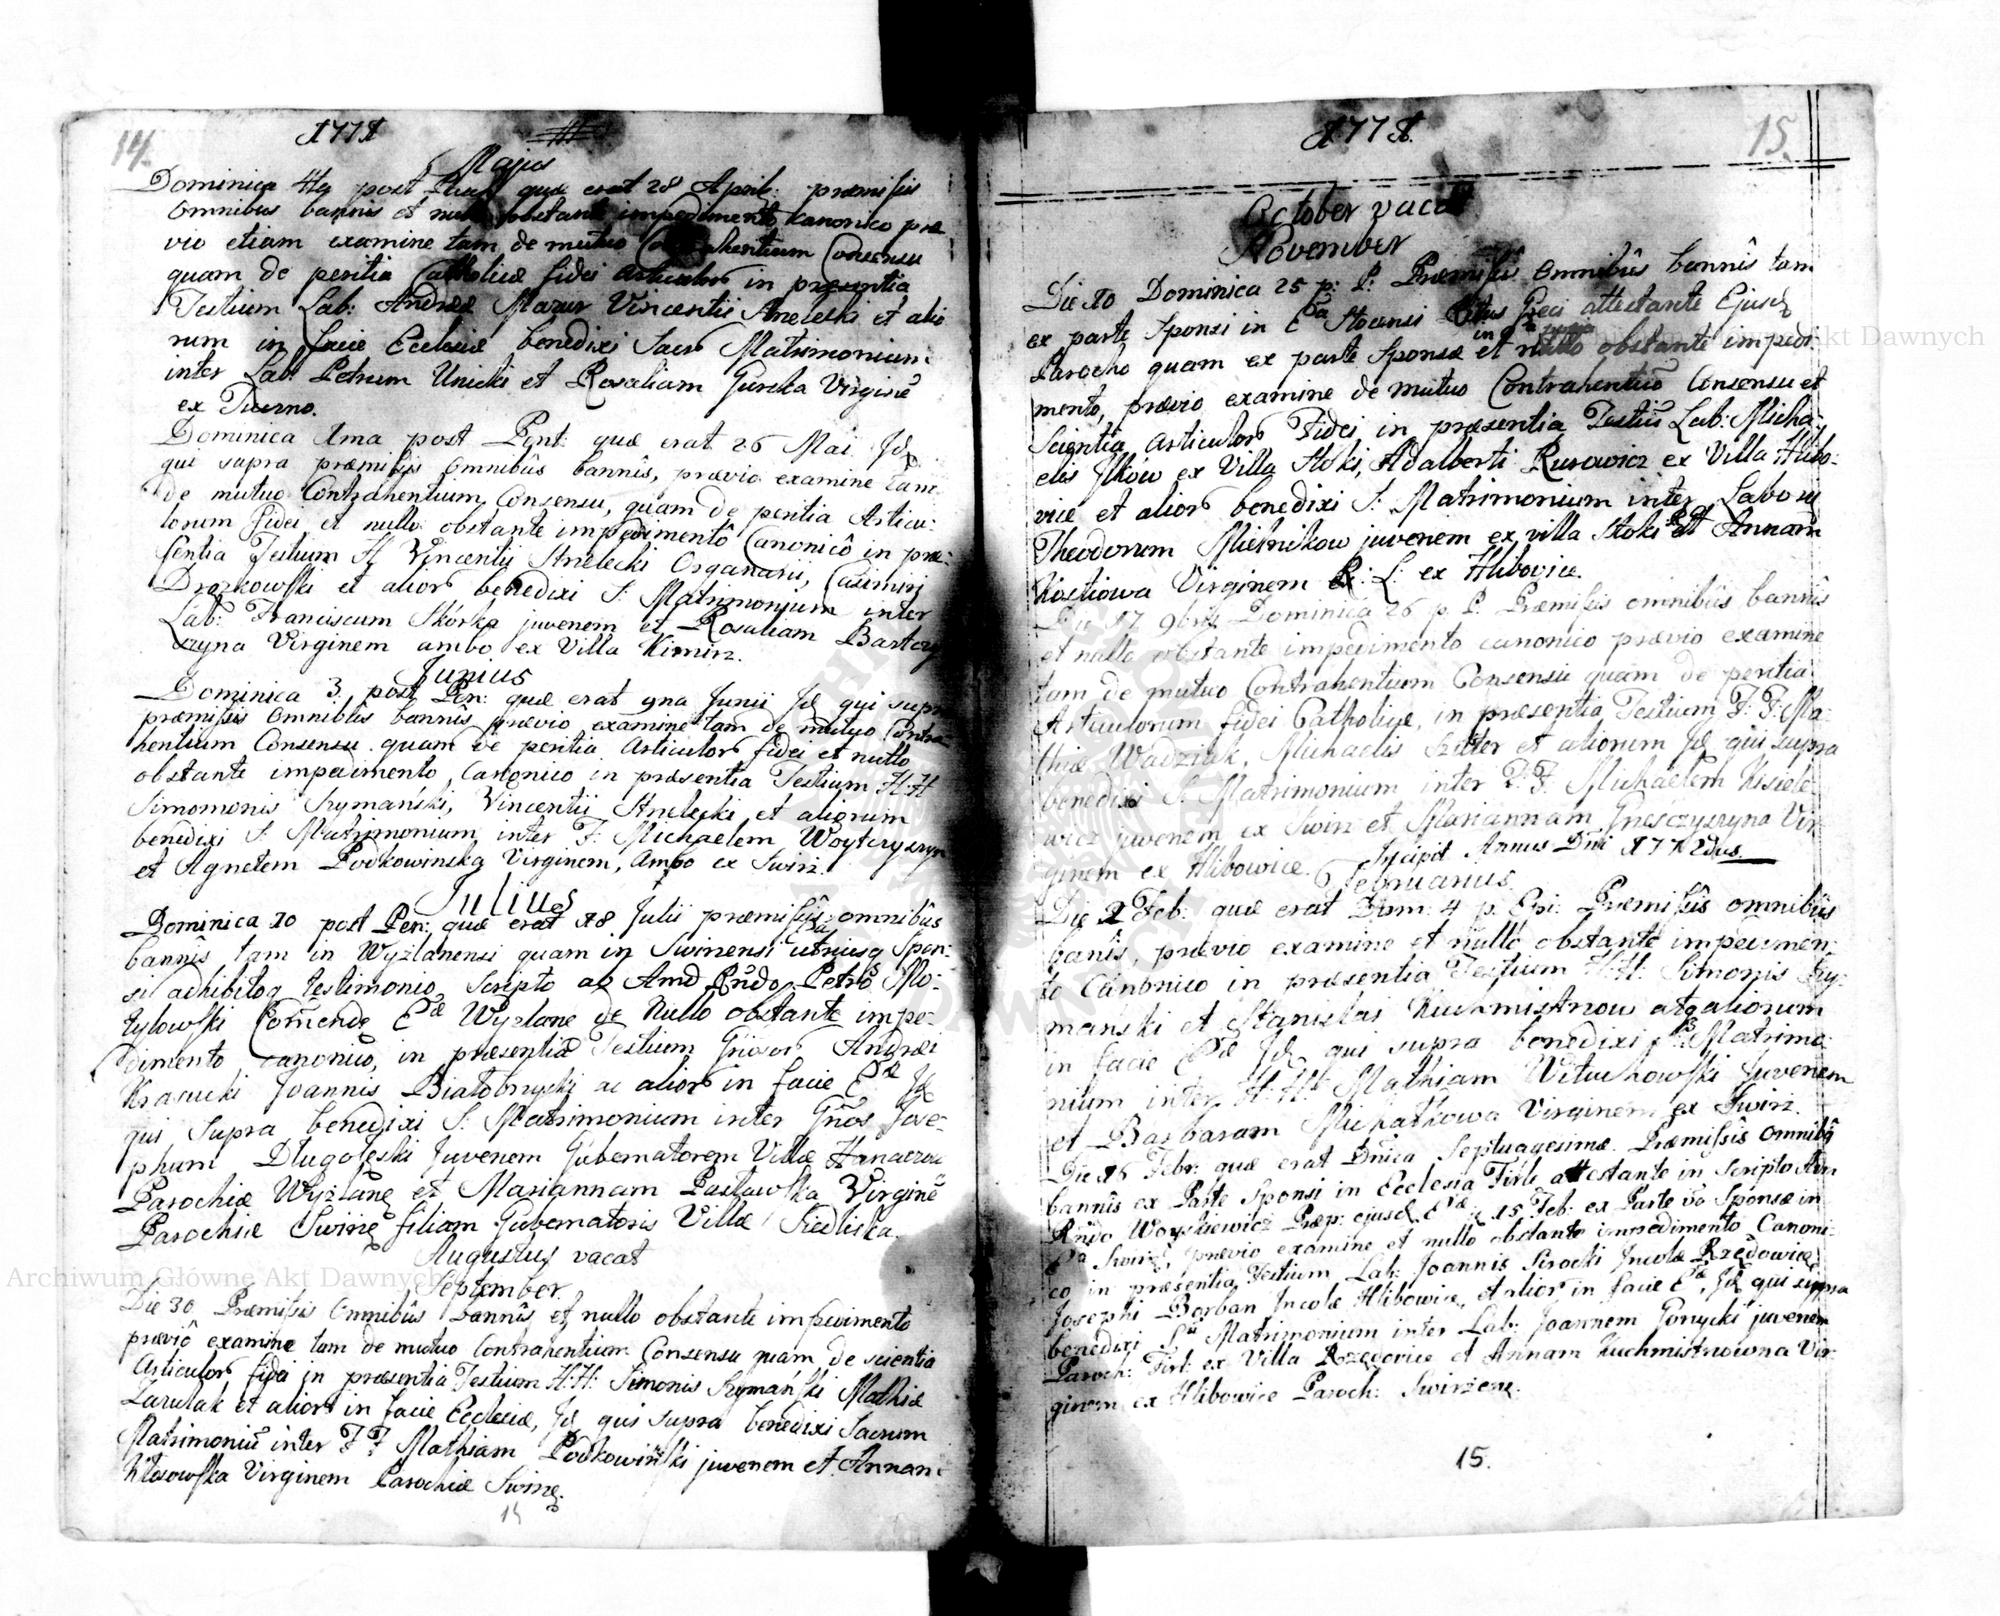 14.
1771
Majus
Dominica 4ta post Pasch quæ erat 28 April: præmissis
omnibus bannis et nullo obstante impedimento Kanonico præ
vio etiam examine tam de mutuo Contrahentium Consensu
quam de peritia Catholicæ fidei Articulor in præsentia
Testium Lab: Andreæ Mazur Vincentii Strelecki et alio
rum in facie Ecclesiæ benedixi Sacr Matrimonium
inter Lab: Petrum Unicki et Rosaliam Gurska Virginē
ex
Dominica 1ma post Pent: quæ erat 26 Mai Id
qui supra præmissis omnibûs bannîs, prævio examine tam
de mutuo Contrahentium Consensu, quam de peritia Articu:
lorum fidei et nullo obstante impedimentô Canonicô in præ:
sentia Testium H Vincentii Strelecki Organarii, Casimiri
Drozkowski et alior benedixi S: Matrimonium inter
Lab: Franciscum Skórka juvenem et Rosaliam Bartczy
szyna Virginem ambo ex Villa Kimirz.
Junius
Dominica 3. post Pen: quæ erat 9na Junii Id qui supra
præmissis omnibus bannis prævio examine tam de mutuo Contra
hentium Consensu quam de peritia Articulor fidei et nullo
obstante impedimento Canonico in præsentia Testium H:H
Simomonis Szymański, Vincentii Strelecki et aliorum
benedixi S: Matrimonium inter F: Michaelem Woytczyszyn
et Agnetem Podkowinską Virginem, Ambo ex Swirz.
Julius
Dominica 10 post Pen: quæ erat 28 Julii præmissîs omnibûs
bannîs, tam in Wyzlanensi quam in Swirzensi Ecclâ utriusq Spon:
si adhibitoq testimonio Scripto ab Amd Rndo Petro Mo:
tylowski Comende Eæ Wyzlane de Nullo obstante impe:
dimento canonico, in præsentia Testium Gnosor Andræi
Krasucki Joannis Białobrzycki ac alior in facie Eæ Id
qui supra benedixi S: Matrimonium inter Gnos Jose:
phum Długołęski Juvenem Gubernatorem Villæ Hanaczow
Parochiæ Wyzlane et Mariannam Pasławska Virginē
Parochiæ Swirze filiam Gubernatoris Villæ Siedliska.
Augustus vacat
September
Die 30 Præmissis omnibûs bannîs et nullo obstante impedimento
præviô examine tam de mutuo Contrahentium Consensu quam de scientia
Articulor fidei in præsentia Testium H:H: Simonis Szymański Mathiæ
Zarulak et alior in facie Ecclesiæ, Id qui supra benedixi Sacrum
Matrimoniū inter F:F Mathiam Podkowiński juvenem et Annam
Kłosowska Virginem Parochiæ Swirze.
14
1771.
15.
October vacat
November
Die 10 Dominica 25 p: P: Præmissîs omnibûs bannîs tam
ex parte Sponsi in Ea Stocensi Ritus Græci attestante Ejusd
Parocho quam ex parte Sponsæ et nullo obstante impedi
mento, prævio examine de mutuo Contrahentiū Consensu et
Scientia Articulor Fidei in præsentia Testiū Lab: Micha:
elis Ilków ex Villa Stoki, Adalberti Rusowicz ex Villa Hlibo:
vice et alior benedixi S: Matrimonium inter Labosu
Theodorum Mielnikow juvenem ex villa Stoki et Annam
Kostiowa Virginem R: L: ex Hlibovice.
Die 17 9bris Dominica 26 p. P. Præmissis omnibûs bannîs
et nullo obstante impedimento canonico prævio examine
tam de mutuo Contrahentium Consensu quam de peritia
Articulorum fidei Catholicæ, in præsentia Testium F: F: Ma:
thiæ Wadziuk, Michaelis Szuter et aliorum Id qui supra
benedixi S. Matrimonium inter F: F. Michaelem Kisiele
wicz juvenem ex Swirz et Mariannam Gnesczyszyna Vir
ginem ex Hlibowice.
Incipit Annus Dni 1772dus.
Februarius
Die 2 Feb: quæ erat Dom: 4 p. Epi: Præmissîs omnibûs
banîs, prævio examine et nullo obstante impedimen:
to Canonico in præsentia Testium H:H: Simonis Szy:
mański et Stanislai Kuchmistrow atq aliorum
in facie Eæ Id qui supra benedixi S Matrimo
nium inter H:H: Mathiam Wituchowski Juvenem
et Barbaram Michałkowa Virginem ex Swirz.
Die 16 Febr: quæ erat Dnica Septuagesimæ Præmissîs omnibq
bannîs ex Parte Sponsi in Ecclesia Firle attestante in Scripto Adm
Rndo Woyskiewicz Præp: ejusd Eæ 15 Feb: ex Parte vo Sponsæ in
Ea Swirz, prævio examine et nullo obstante impedimento Canoni:
co in præsentia Testium Lab: Joannis Sirocki Incolæ Rzędowice
Josephi Borban Incolæ Hlibowice, et alior in facie Eæ, Id qui supra
benedixi Sm Matrimonium inter Lab: Joannem Gonycki juvenem
Paroch: Firl: ex Villa Rzędovice et Annam Kuchmistrowna Vir:
ginem ex Hlibowice Paroch: Swirzene.
15.
Archiwum Główne Akt Dawnych
Archiwum Główne Akt Dawnych